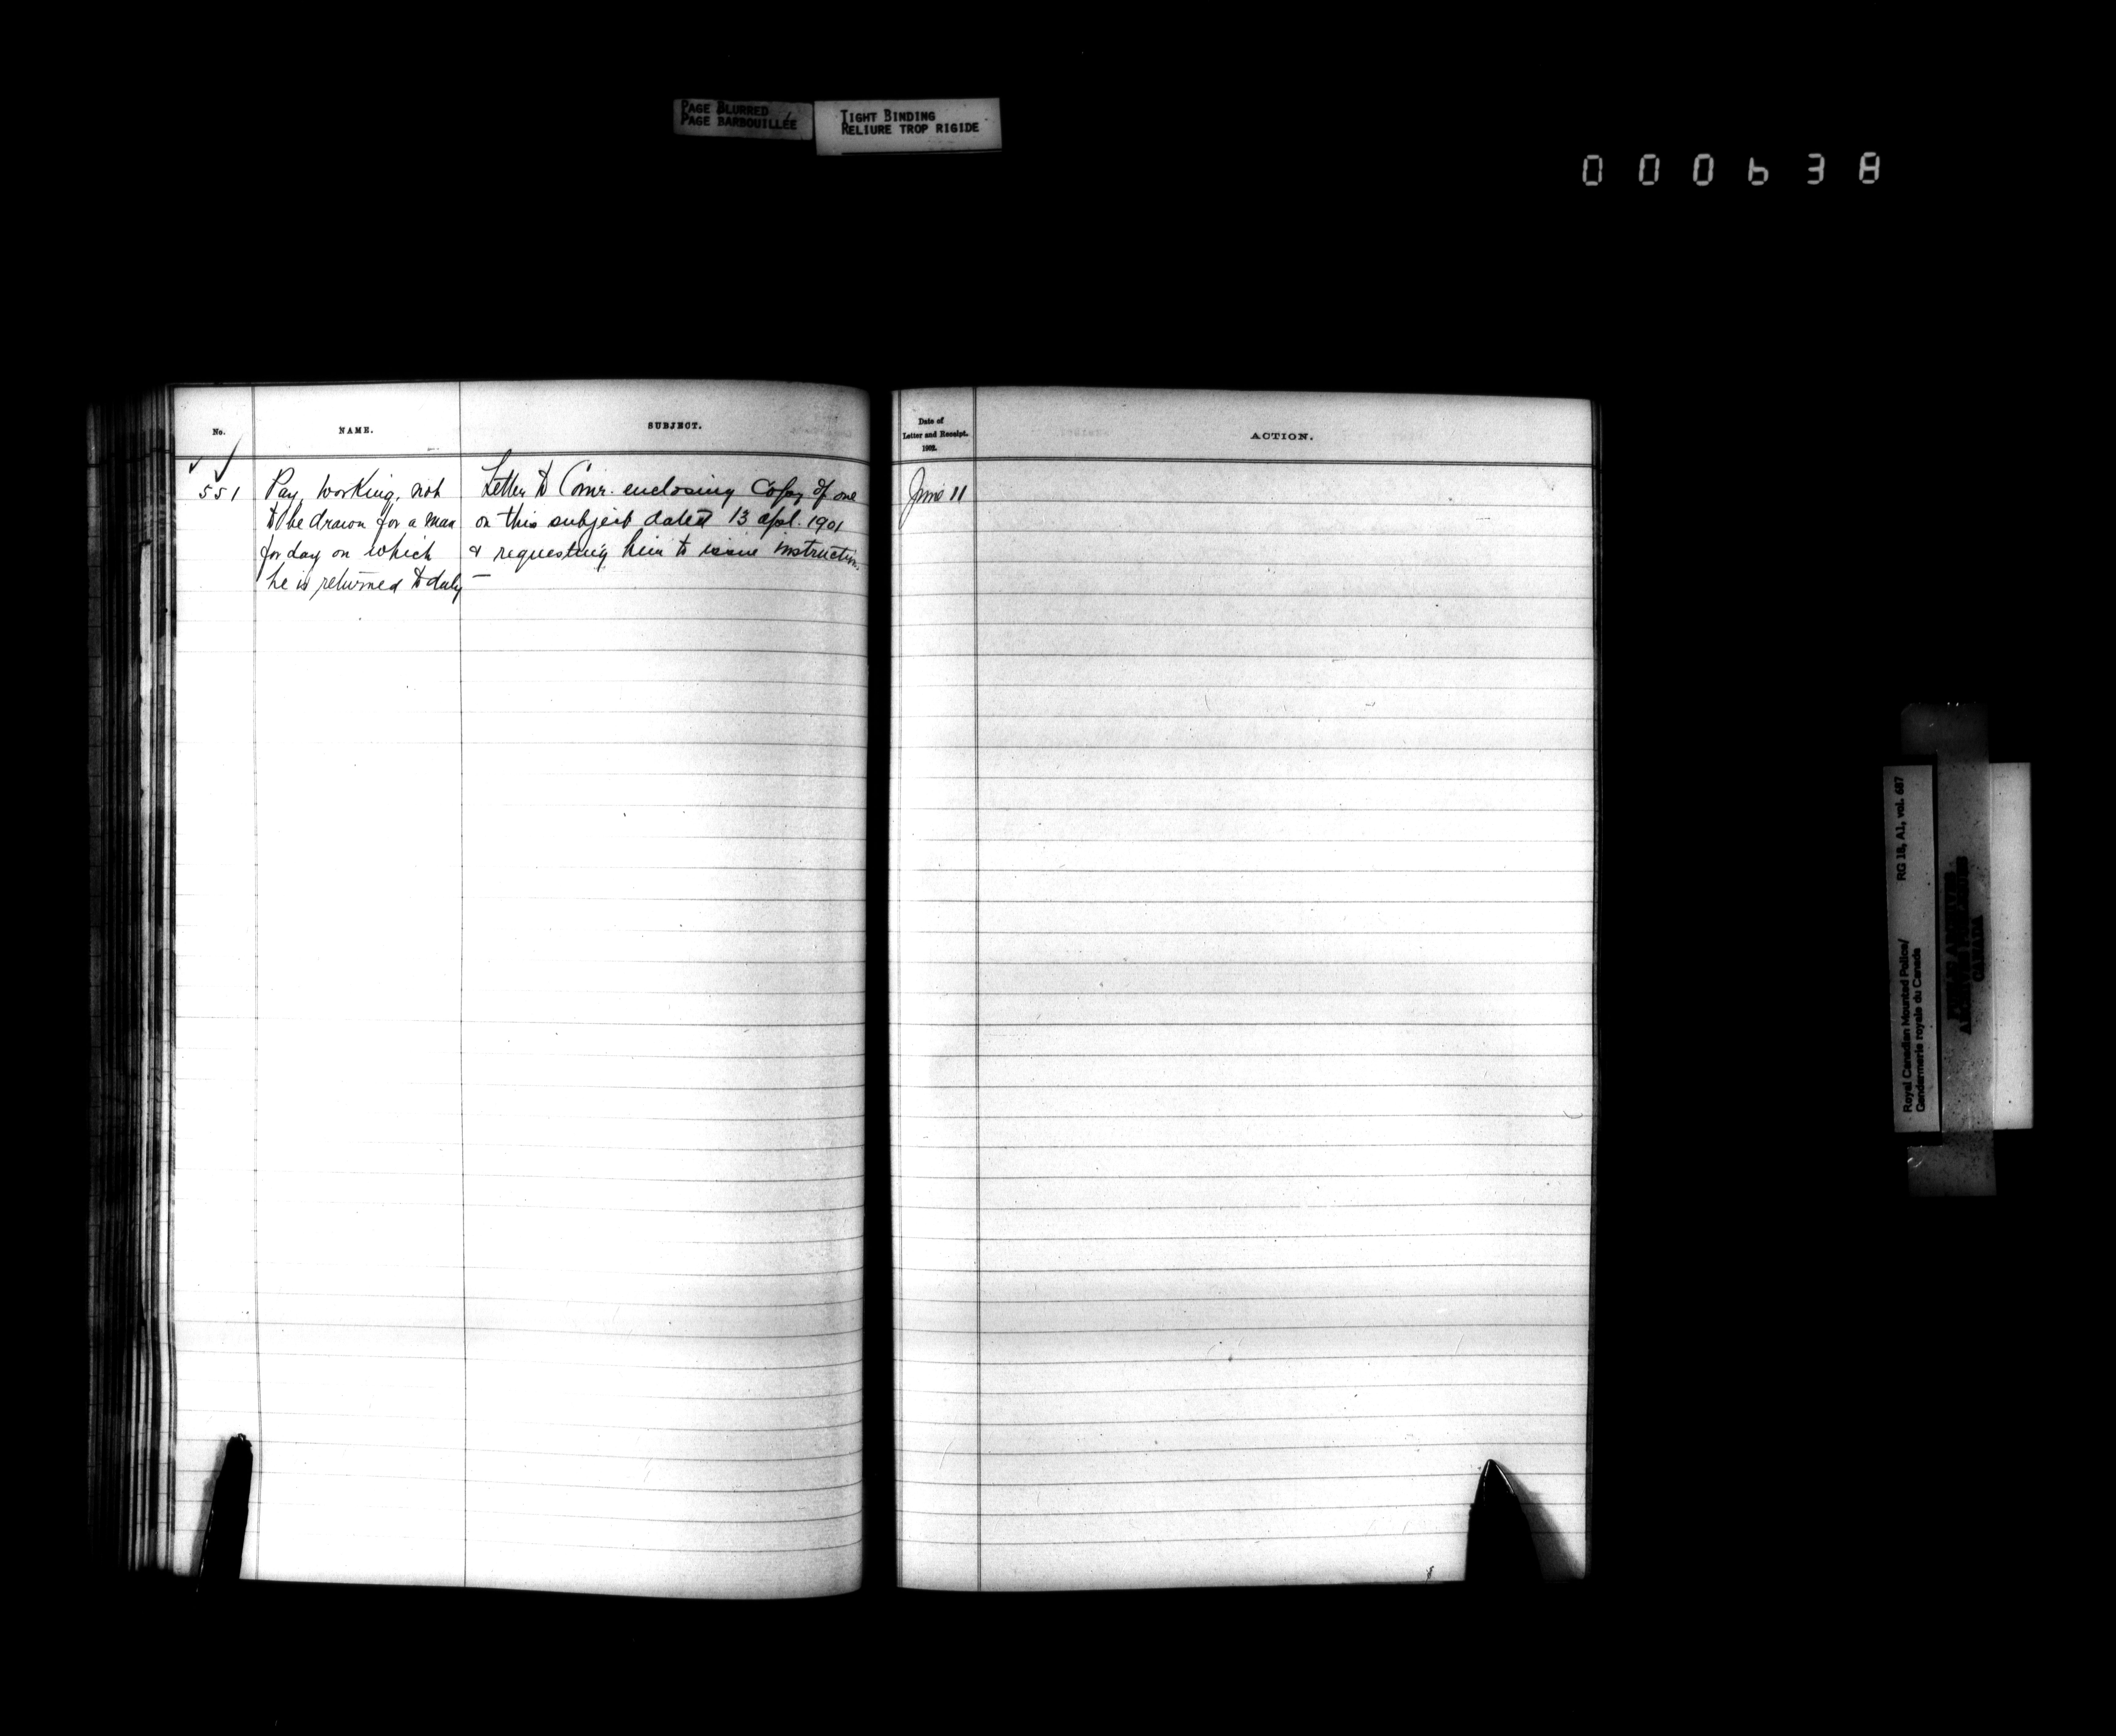 PAGE BLURRED
PAGE BARBOUILLÉE
TIGHT BINDING
RELIURE TROP RIGIDE
000638
No.
NAME.
SUBJECT.
Date of
Letter and Receipt.
1902.
ACTION.
551
Pay, working, not
to be drawn for a man
for day on which
he is returned to duty
Letter to Comr. enclosing copy of one
on this subject dated 13 apl. 1901
& requesting him to issue instructions.
—
June 11
Royal Canadian Mounted Police/
Gendarmerie royale du Canada
RG 18, A1, vol. 687
CANADA